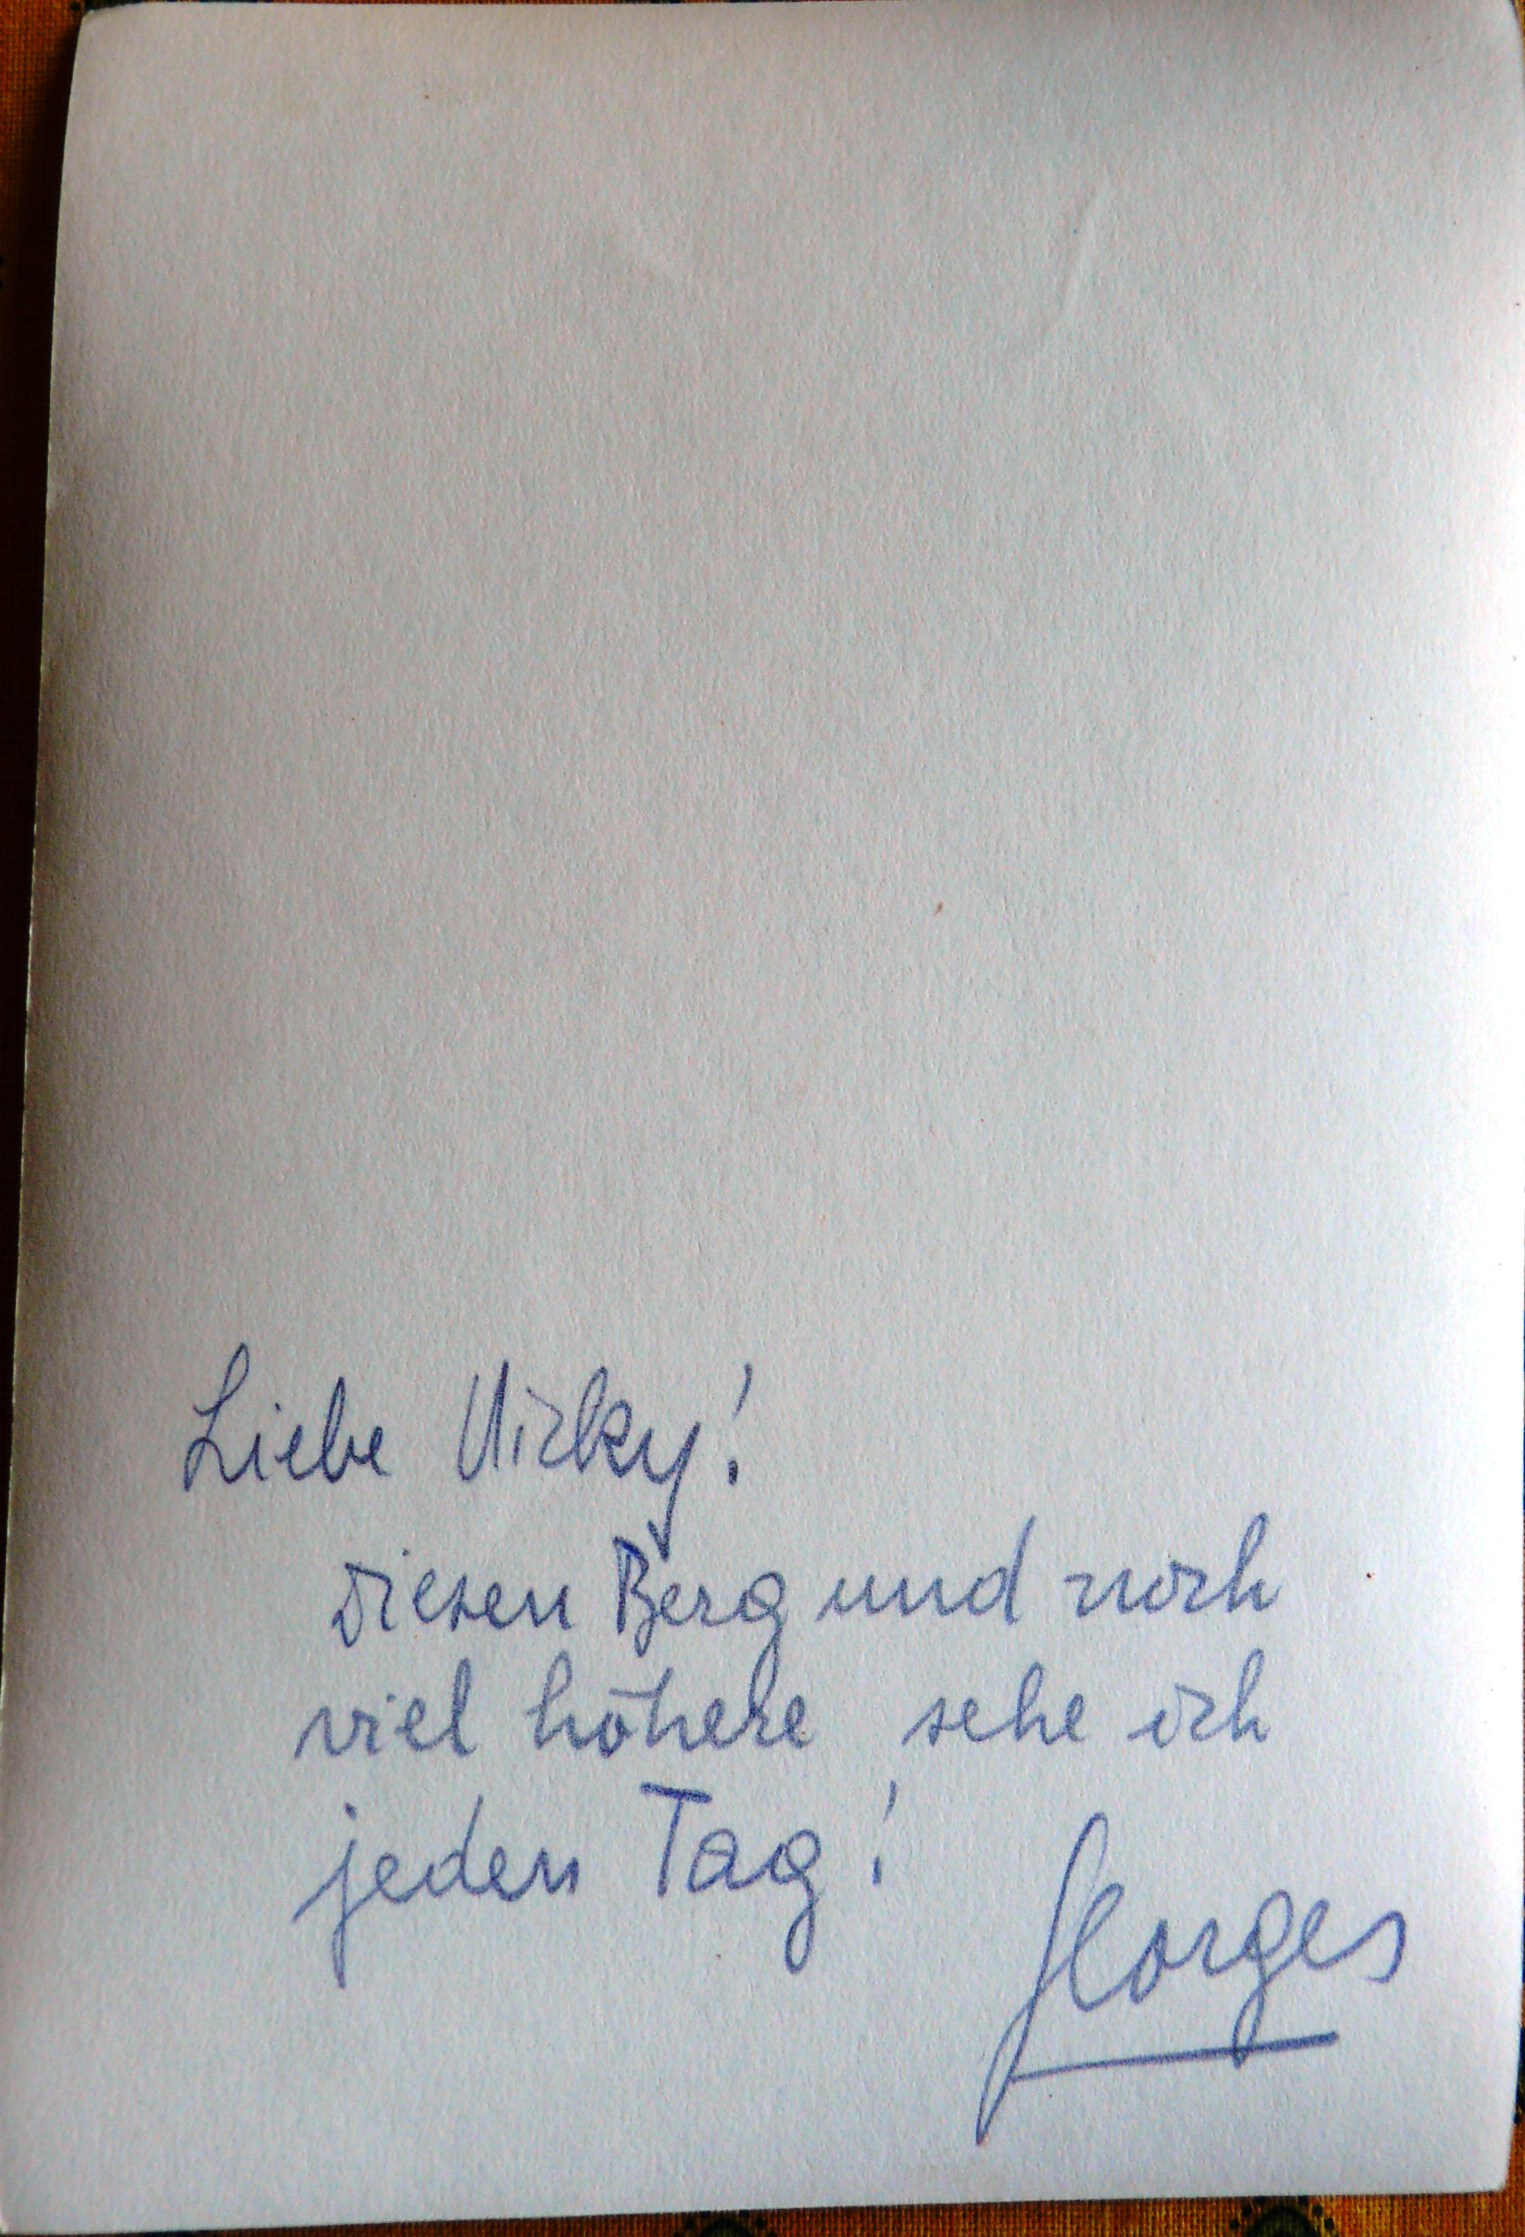 Liebe Vicky!
diesen Berg und noch
viel höhere sehe ich
jeden Tag!
Georges